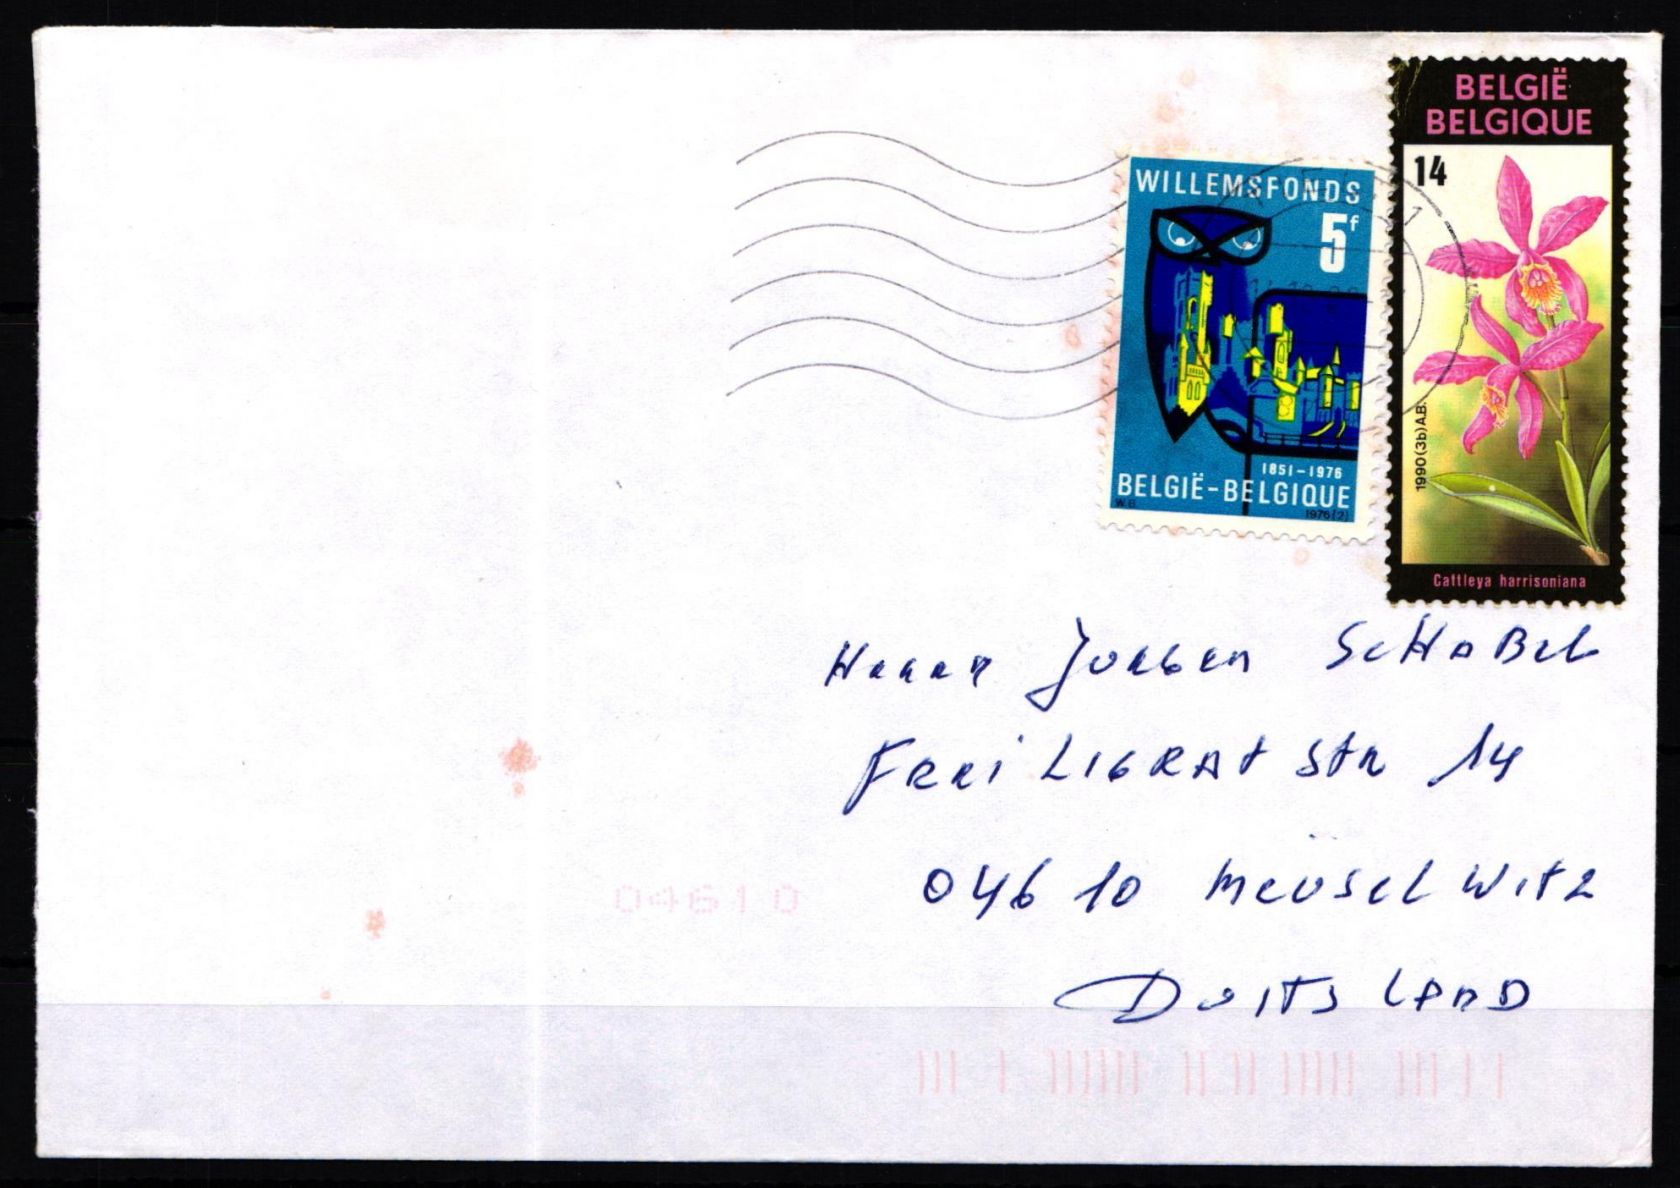 BELGIË
BELGIQUE
14
1990(3b)A.B.
Cattleya harrisoniana
WILLEMSFONDS
5F
1851-1976
BELGIË-BELGIQUE
W.B.
1976(2)
Herrn Jurgen SCHABEL
FREiLIGRAt Str 14
04610 MEUSELWitz
DuitsLAND
04610